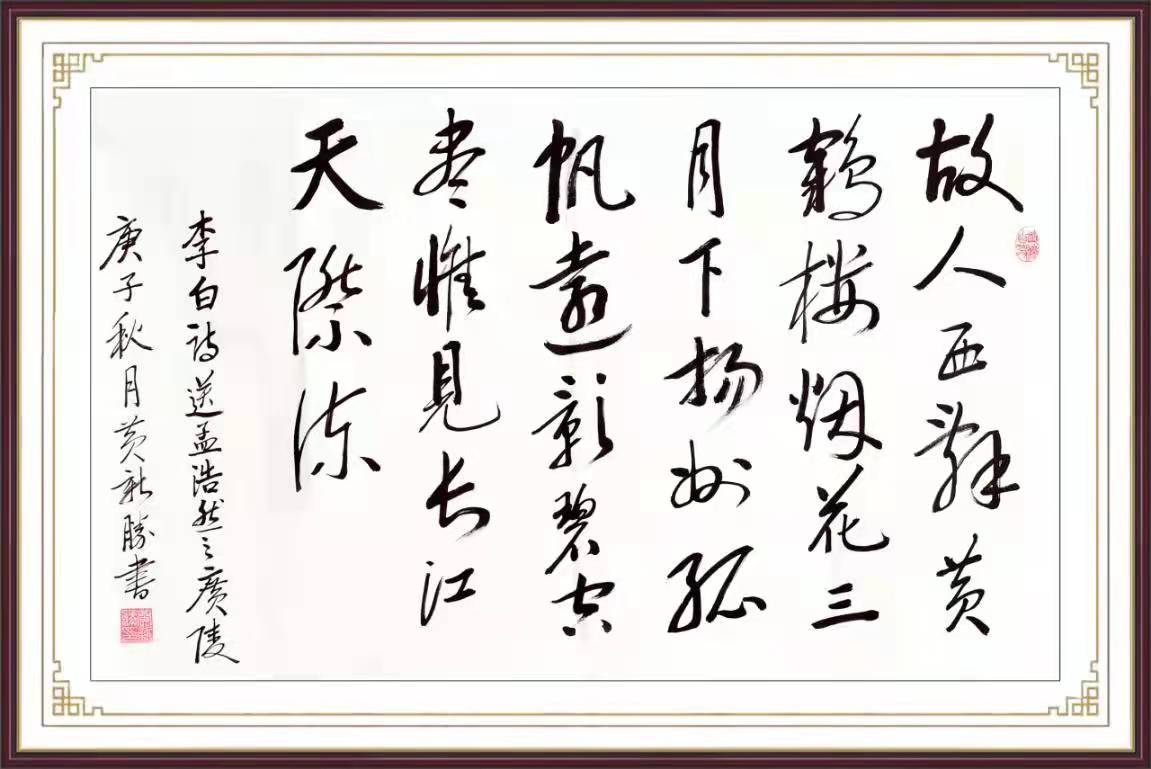 故人西辭黄
鶴楼烟花三
月下扬州孤
帆遠影碧空
盡惟見长江
天際流
李白詩送孟浩然之廣陵
庚子秋月黄勝書